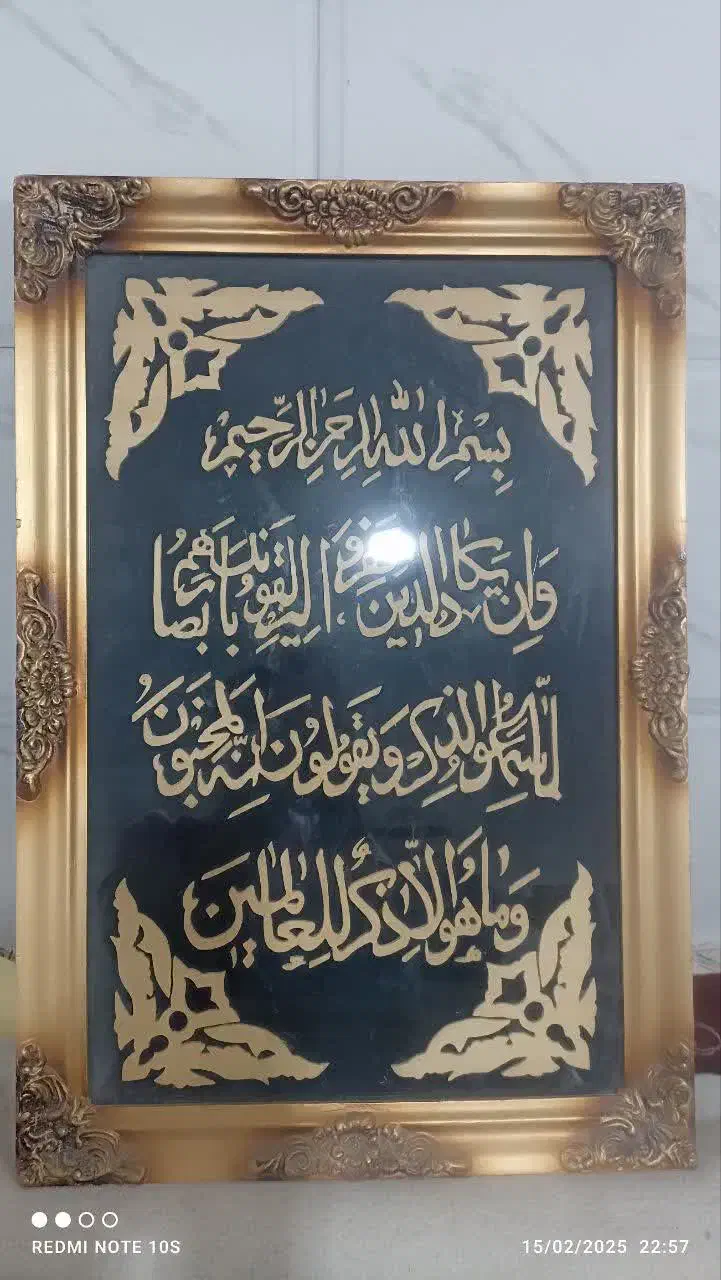 بِسْمِ اللهِ الرَّحْمنِ الرَّحيمِ
وَاِن يَكادُ الَّذينَ كَفَروا لَيُزْلِقونَكَ بِاَبْصارِهِمْ
لَمّا سَمِعُوا الذِّكْرَ وَيَقولُونَ اِنَّهُ لَمَجْنونٌ
وَما هُوَ اِلّا ذِكْرٌ لِلْعالَمينَ
REDMI NOTE 10S
15/02/2025 22:57